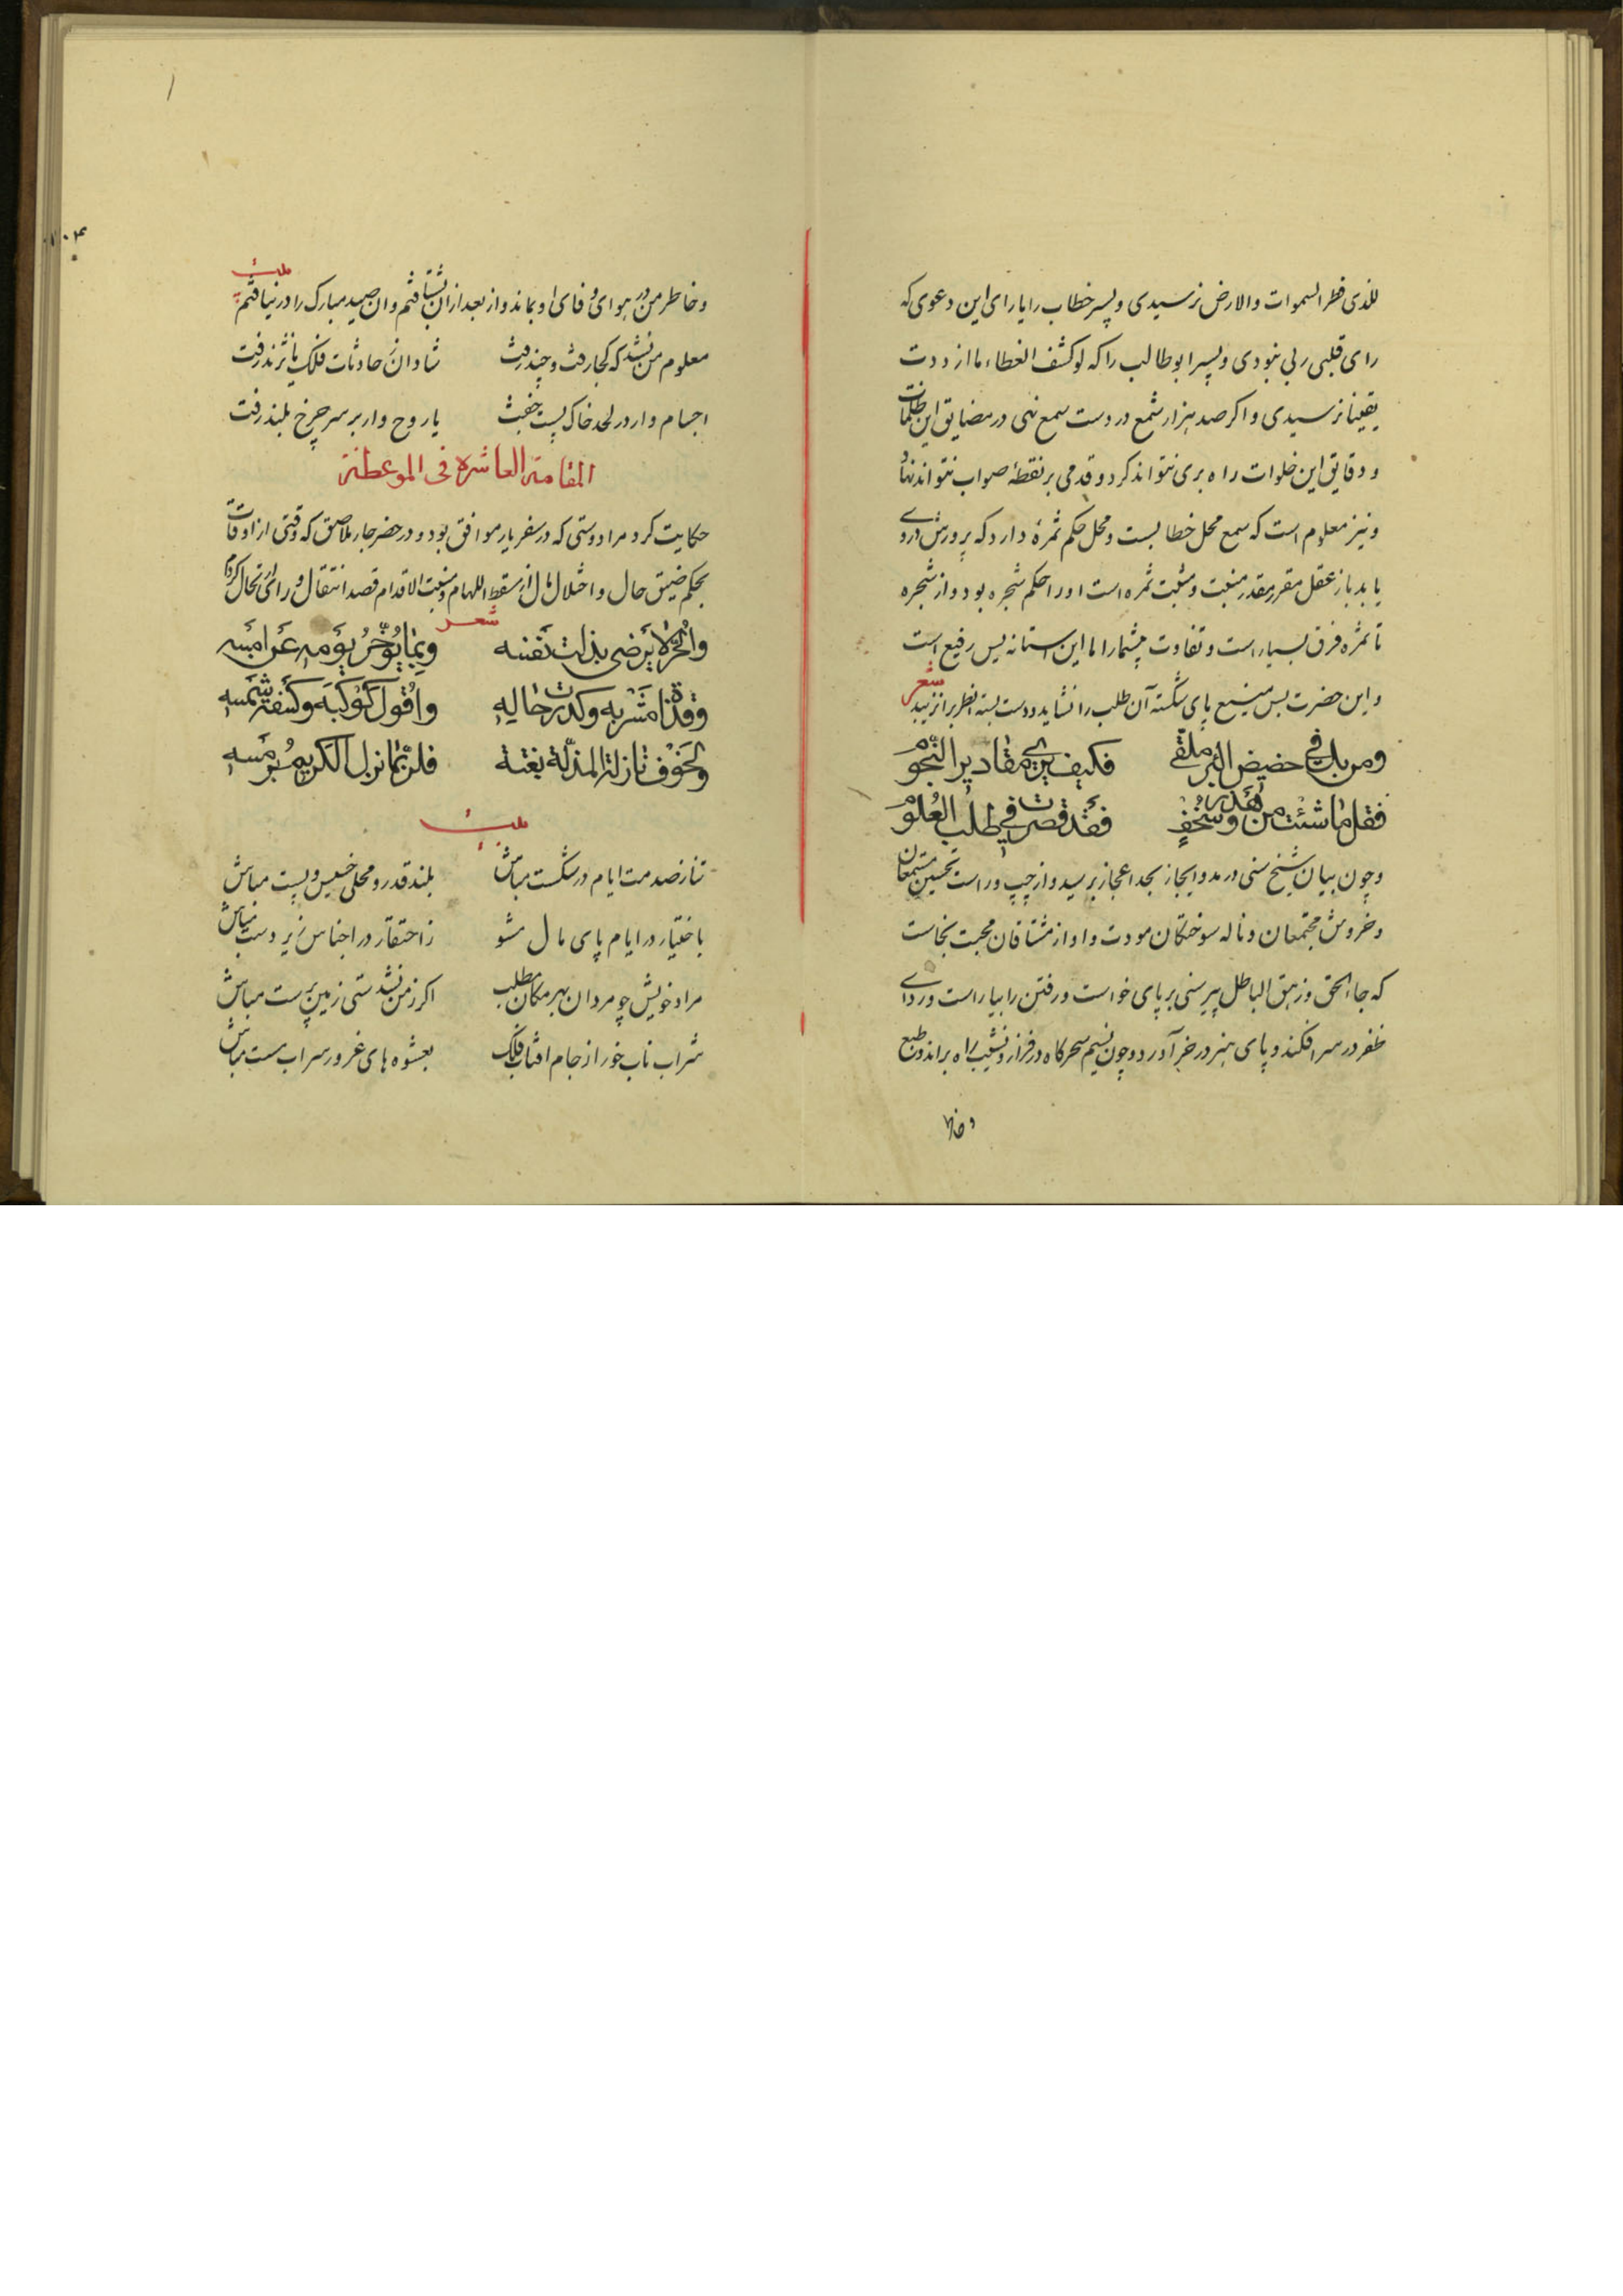 للذی فطر السموات والارض نرسیدی و پسر خطاب را یارای این دعوی که
رای قلبی ربی نبودی و پسر ابو طالب را که لو کشف الغطاء ما ازددت
یقینا نرسیدی و اکر صد هزار شمع در دست سمع نهی در مضایق این ظلمات
و دقایق این خلوات راه بری نتواند کرد و قدمی بر نقطهٔ صواب نتواند نهاد
و نیز معلوم است که سمع محل خطابست و محل حکم ثمرهٔ دارد که پرورش از وی
یابد باز عقل مقرر مقدر منبت و مثبت ثمره است او را حکم شجره بود و از شجره
تا ثمره فرق بسیار است و تفاوت بیشمار اما این استانه بس رفیع است
و این حضرت بس منیع پای شکسته آن طلب را نشاید و دست بسته انظر را نزیبد
شعر
ومن یك في حضیض البئر ملقی فکیف یری مقادیر النجوم
فقل ما شئت من هذر وسخف فقد قصرت في طلب العلوم
و چون بیان شیخ سنی در مد و ایجاز بحد اعجاز برسید و از چپ و راست تحسین مستمعان
و خروش مجتمعان و ناله سوختکان مودت و اواز مشتاقان محبت بخاست
که جاء الحق وزهق الباطل پیر سنی بر پای خواست و رفتن را بیاراست و ردای
ظفر در سر افکند و پای هنر در خر آورد و چون نسیم سحرکاه در فراز و نشیب راه براند و من طبع
و خاطر
وخاطر من در هوای و فای او بماند و از بعد از ان بشتافتم و ان صید مبارک را در نیافتم
بیت
معلوم من نشد که کجا رفت و چند رفت شادان ز حادثات فلک یا نژند رفت
اجسام وار در لحد خاک پست خفت یا روح وار بر سر چرخ بلند رفت
المقامة العاشرة فی الموعظة
حکایت کرد مرا دوستی که در سفر یار موافق بود و در حضر جار ملاصق که وقتی از اوقات
بحکم ضیق حال و اختلال مال از مسقط اللهام و منبت الاقدام قصد انتقال و رای ارتحال کردم
شعر
والحر لا یرضی بذلت نفسه وبما یؤخر یومه عن امسه
وقذا مشربه وکدرت حالیه وافول کوکبه وکسفة شمسه
ولخوف نازلة المذلة بغتة فلربما نزل الکریم برمسه
بیت
تنا ز صدمت ایام در شکست مباش بلند قدر و محلی خسیس و پست مباش
باختیار در ایام پای مال مشو ز احتقار در اجناس زیر دست مباش
مراد خویش چو مردان بهر مکان بطلب اکر زمن نشدستی زمین پرست مباش
شراب ناب خور از جام افتاب فلک بعشوه های غرور سراب مست مباش